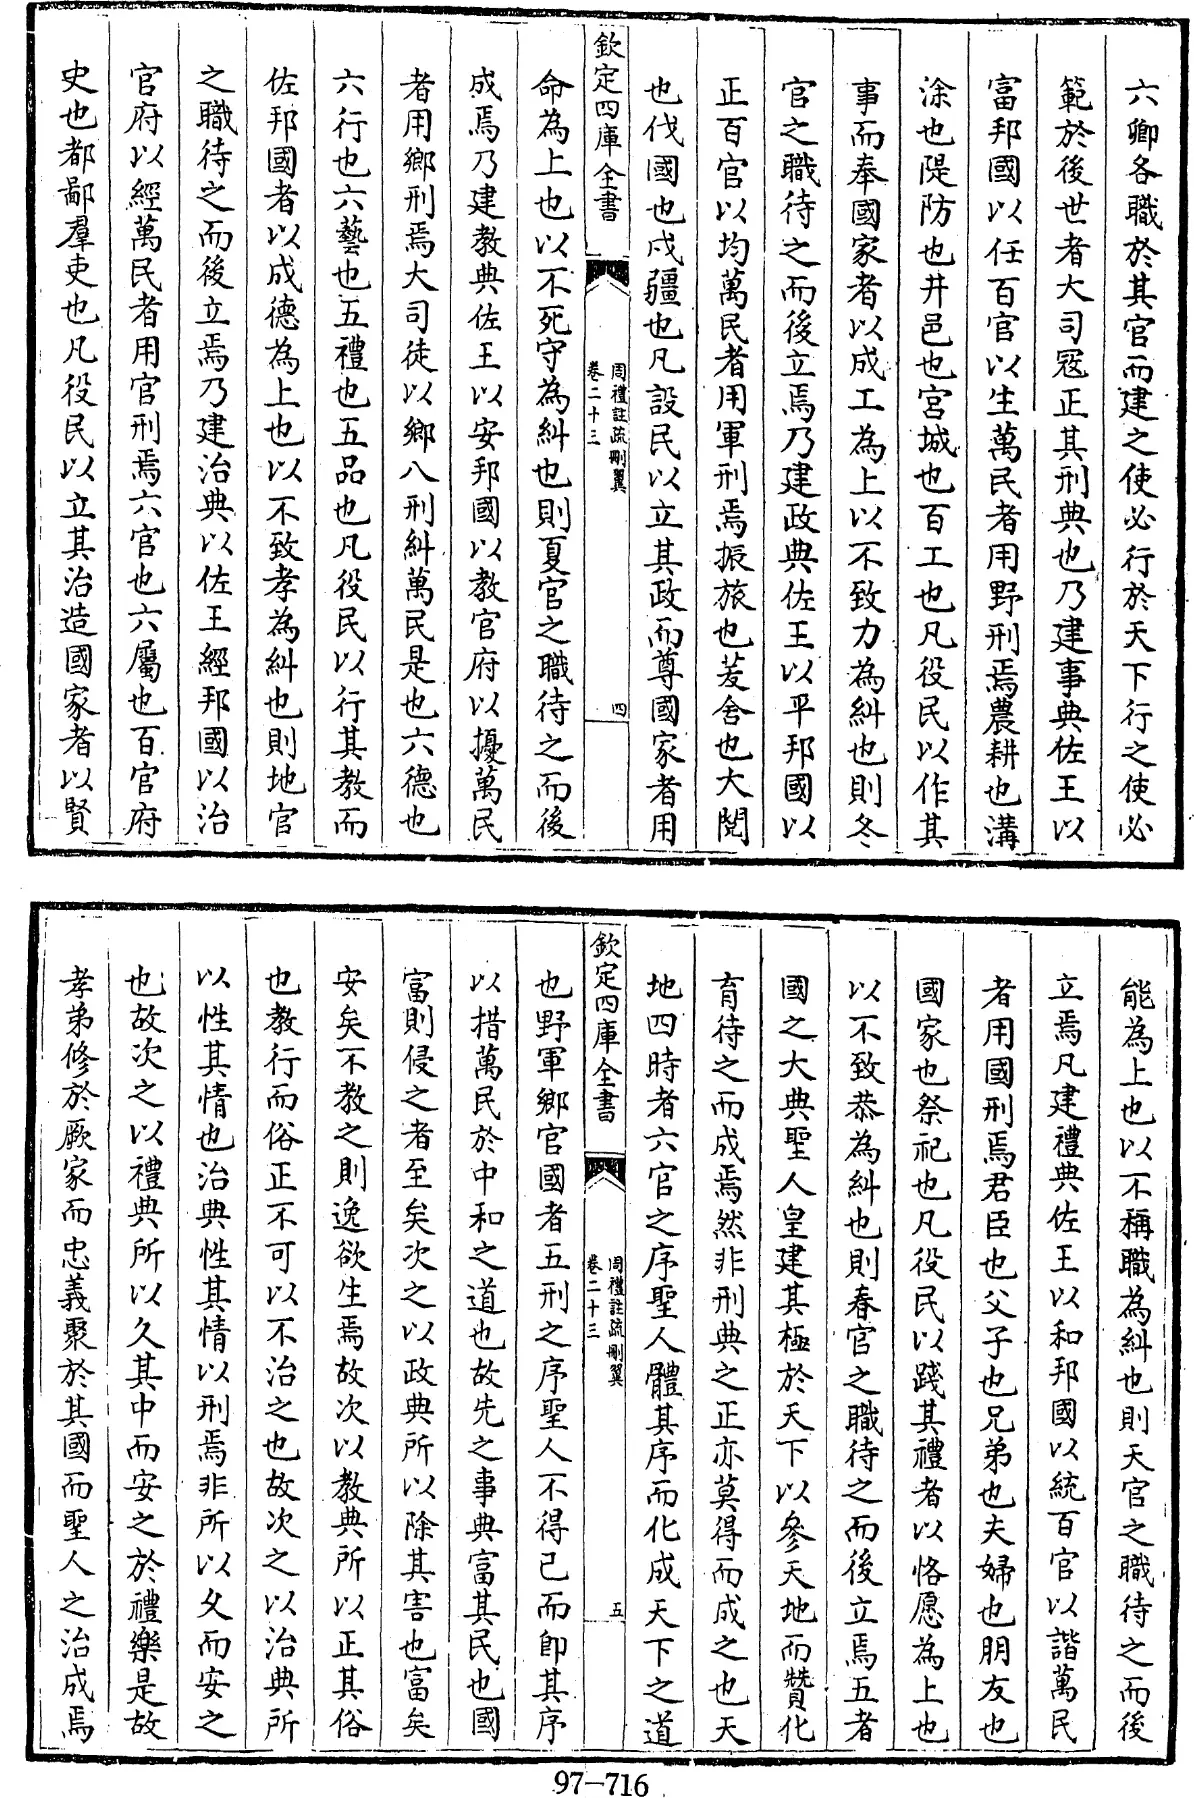 六卿各職於其官而建之使必行於天下行之使必
範於後世者大司冦正其刑典也乃建事典佐王以
富邦國以任百官以生萬民者用野刑焉農耕也溝
涂也隄防也井邑也宮城也百工也凡役民以作其
事而奉國家者以成工為上以不致力為糾也則冬
官之職待之而後立焉乃建政典佐王以平邦國以
正百官以均萬民者用軍刑焉振旅也茇舍也大閱
也伐國也戍疆也凡設民以立其政而尊國家者用
欽定四庫全書
周禮註疏刪翼
卷二十三
四
命為上也以不死守為糾也則夏官之職待之而後
成焉乃建教典佐王以安邦國以教官府以擾萬民
者用鄉刑焉大司徒以鄉八刑糾萬民是也六德也
六行也六藝也五禮也五品也凡役民以行其教而
佐邦國者以成德為上也以不致孝為糾也則地官
之職待之而後立焉乃建治典以佐王經邦國以治
官府以經萬民者用官刑焉六官也六屬也百官府
史也都鄙羣吏也凡役民以立其治造國家者以賢
能為上也以不稱職為糾也則天官之職待之而後
立焉凡建禮典佐王以和邦國以統百官以諧萬民
者用國刑焉君臣也父子也兄弟也夫婦也朋友也
國家也祭祀也凡役民以踐其禮者以恪愿為上也
以不致恭為糾也則春官之職待之而後立焉五者
國之大典聖人皇建其極於天下以參天地而贊化
育待之而成焉然非刑典之正亦莫得而成之也天
地四時者六官之序聖人體其序而化成天下之道
欽定四庫全書
周禮註疏刪翼
卷二十三
五
也野軍鄉官國者五刑之序聖人不得已而卽其序
以措萬民於中和之道也故先之事典富其民也國
富則侵之者至矣次之以政典所以除其害也富矣
安矣不教之則逸欲生焉故次以教典所以正其俗
也教行而俗正不可以不治之也故次之以治典所
以性其情也治典性其情以刑焉非所以久而安之
也故次之以禮典所以久其中而安之於禮樂是故
孝弟修於厥家而忠義聚於其國而聖人之治成焉
97-716